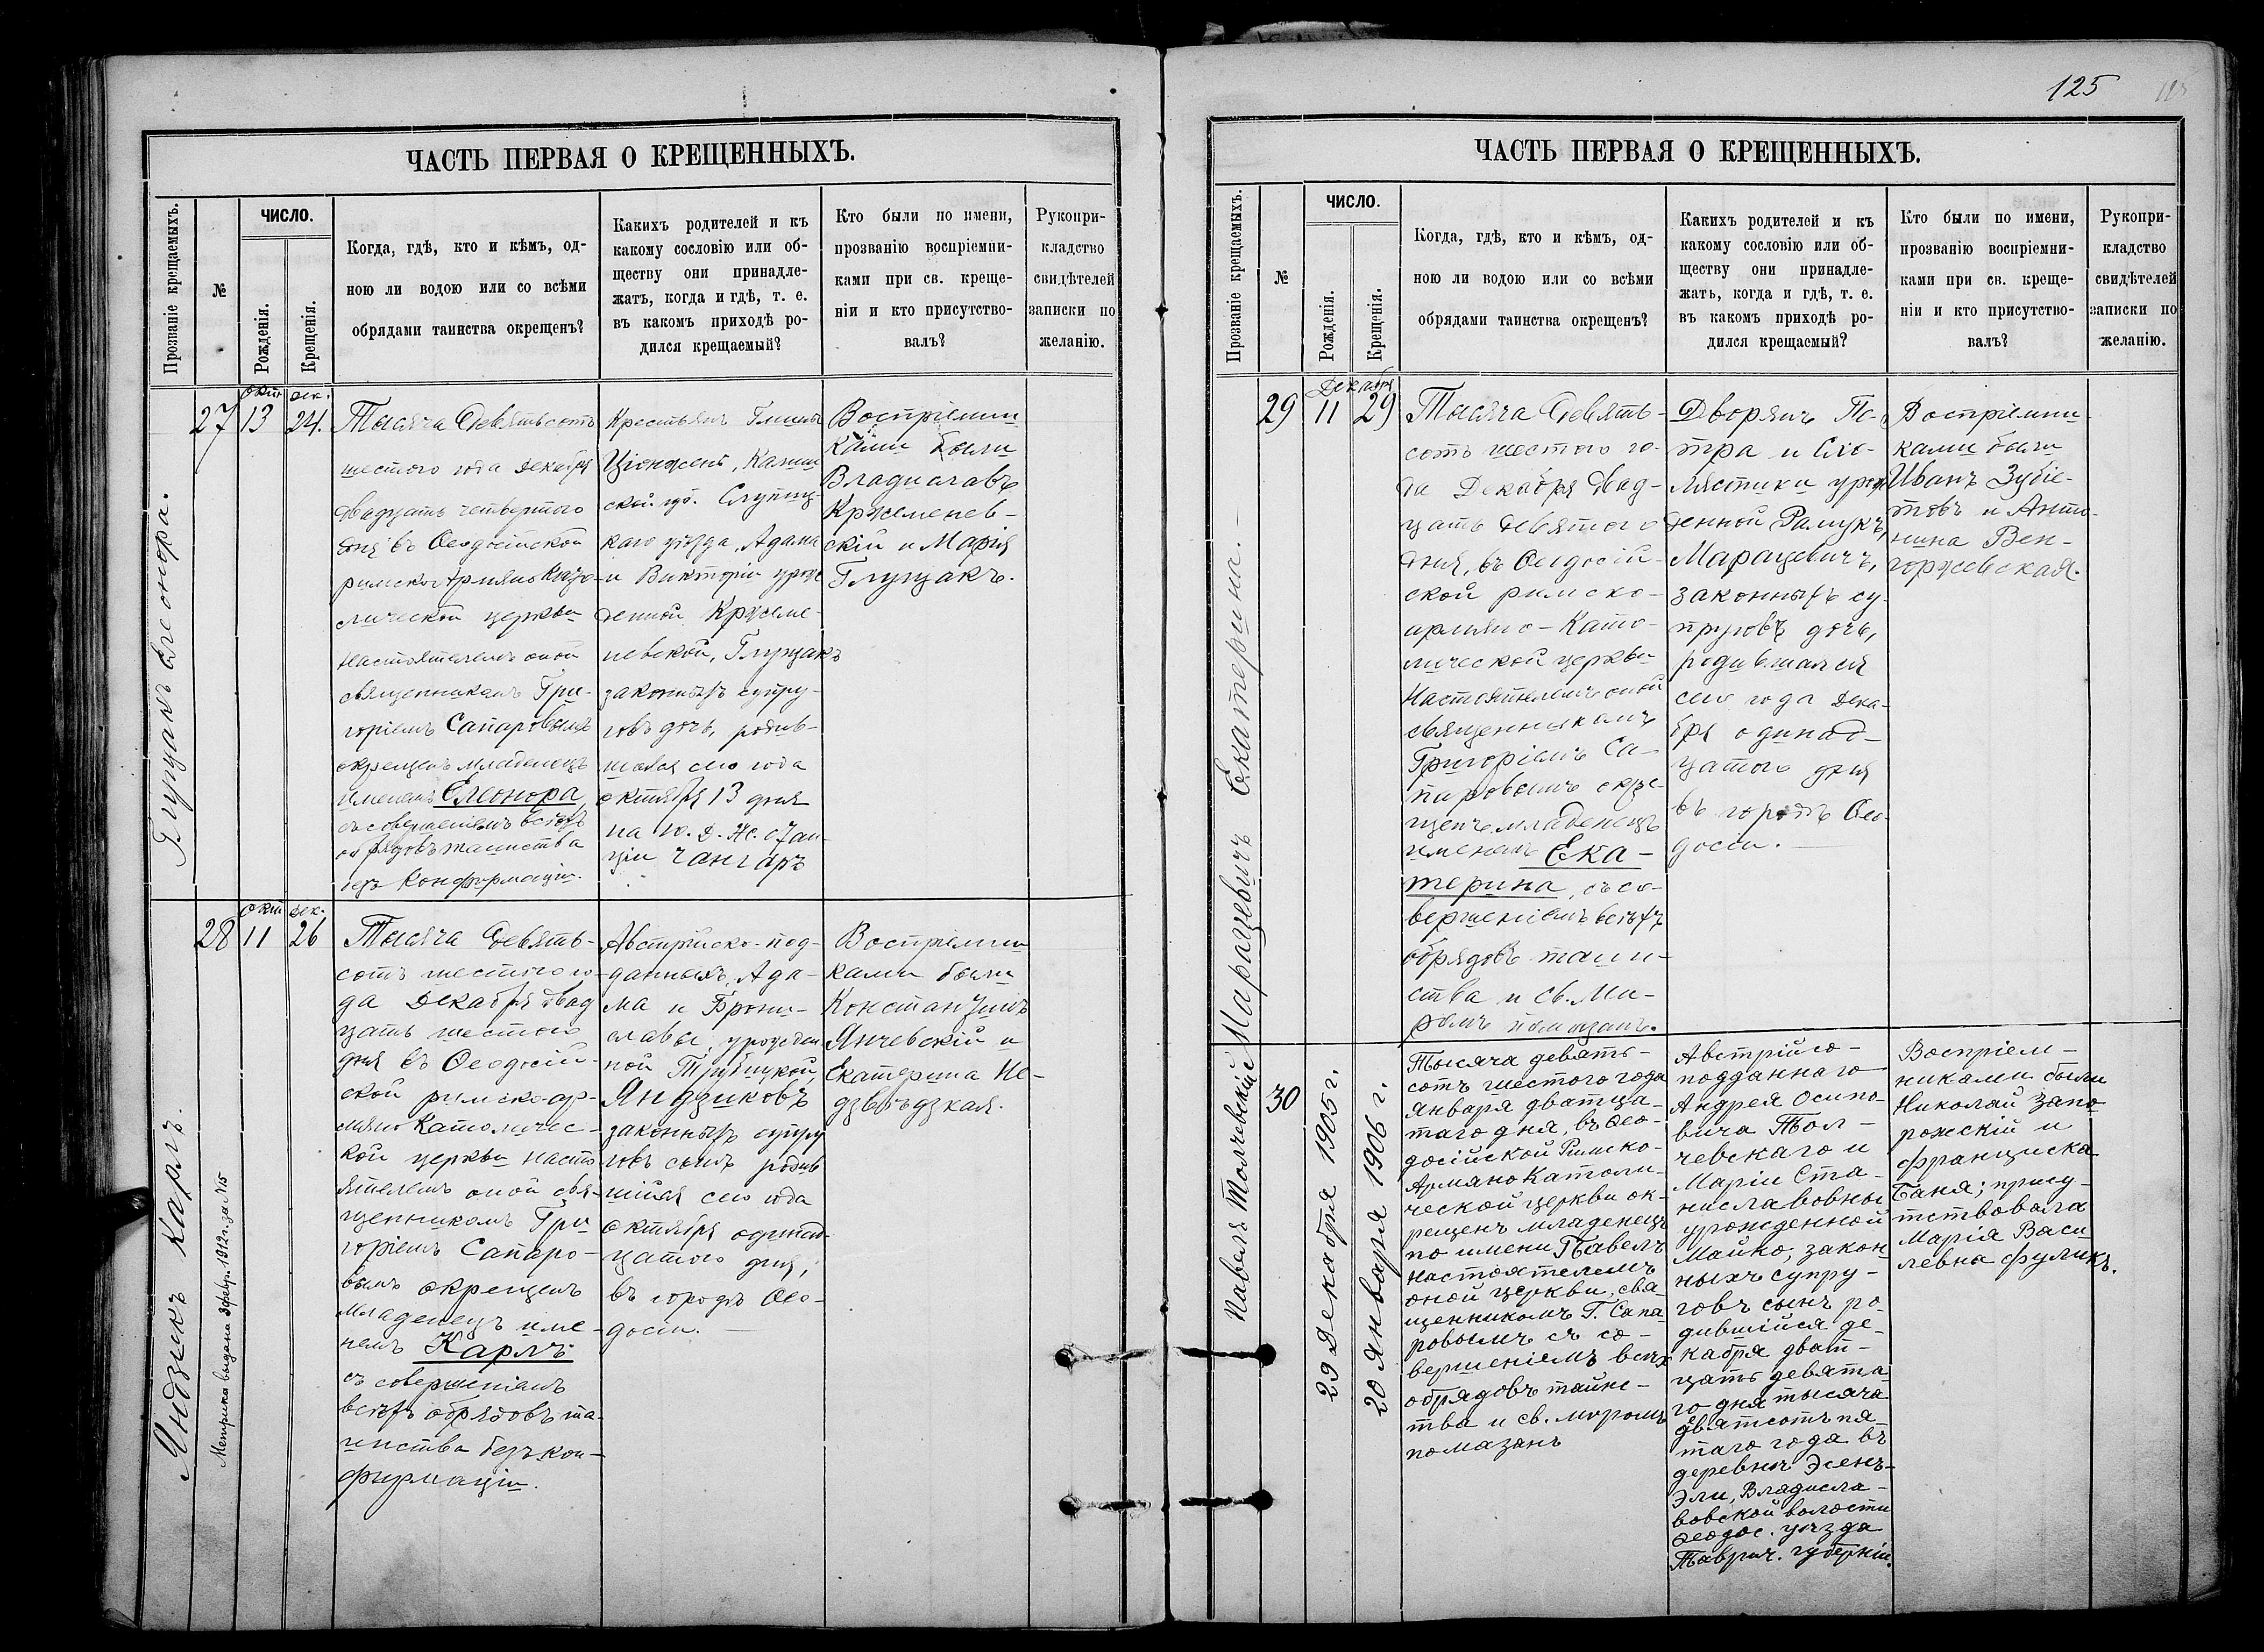 125
ЧАСТЬ ПЕРВАЯ О КРЕЩЕННЫХЪ.
Прозваніе крещаемыхъ.
№
ЧИСЛО.
Рожденія.
Крещенія.
Когда, гдѣ, кто и кѣмъ, од-
ною ли водою или со всѣми
обрядами таинства окрещенъ?
Какихъ родителей и къ
какому сословію или об-
ществу они принадле-
жатъ, когда и гдѣ, т. е.
въ какомъ приходѣ ро-
дился крещаемый?
Кто были по имени,
прозванію воспріемни-
ками при св. креще-
ніи и кто присутство-
валъ?
Рукопри-
кладство
свидѣтелей
записки по
желанію.
Глущакъ Елеонора.
27
окт
13
дек.
24.
Тысяча Девятьсотъ
шестого года Декабря
двадцать четвертого
дня въ Ѳеодосійской
римско Армяно Като-
лической церкви
настоятелемъ оной
священникомъ Гри-
горіемъ Сапаровымъ
окрещенъ младенецъ
именемъ Елеонора,
съ совершеніемъ всѣхъ
обрядовъ таинства
безъ Конфирмаціи.
Крестьянъ Гмины
Ціонжень, Калиш
ской губ. Слупец-
каго уѣзда, Адама
и Викторіи урож
денной Кржеме-
невской, Глущакъ
законныхъ супру-
говъ дочь, родив-
шаяся сего года
октября 13 дня
на ю. д. ж. стан-
ціи Чангаръ
Воспріемни
ками были
Владиславъ
Кржеменев-
скій и Марія
Глущакъ.
Яндзикъ Карлъ.
Метрика выдана 3 февр. 1912 г. за №5
28
окт
11
дек.
26
Тысяча Девять-
сотъ шестого го-
да Декабря двад
цать шестого
дня въ Ѳеодосій-
ской римско-ар-
мяно Католичес-
кой церкви насто
ятелемъ оной свя-
щенникомъ Гри
горіемъ Сапаро-
вымъ окрещенъ
младенецъ име-
немъ Карлъ
съ совершеніемъ
всѣхъ обрядовъ та-
инства безъ кон-
фирмаціи.
Австрійско-под-
данныхъ, Ада-
ма и Брони-
славы, урожден
ной Трубицкой
Яндзиковъ
законныхъ супру
говъ сынъ родив
шійся сего года
Октября одинад-
цатого дня,
въ городѣ Ѳео-
досіи.
Воспріемни
ками были
Константинъ
Янчевскій и
Екатерина Не-
дзвѣдзкая.
ЧАСТЬ ПЕРВАЯ О КРЕЩЕННЫХЪ.
Прозваніе крещаемыхъ.
№
ЧИСЛО.
Рожденія.
Крещенія.
Когда, гдѣ, кто и кѣмъ, од-
ною ли водою или со всѣми
обрядами таинства окрещенъ?
Какихъ родителей и къ
какому сословію или об-
ществу они принадле-
жатъ, когда и гдѣ, т. е.
въ какомъ приходѣ ро-
дился крещаемый?
Кто были по имени,
прозванію воспріемни-
ками при св. креще-
ніи и кто присутство-
валъ?
Рукопри-
кладство
свидѣтелей
записки по
желанію.
Марацевичъ Екатерина.
29
Декабря
11
29
Тысяча Девять-
сотъ шестого го-
да Декабря двад-
цать девятого
дня, въ Ѳеодосій-
ской римско-
армяно-Като-
лической церкви
Настоятелемъ оной
священникомъ
Григоріемъ Са-
паровымъ окре-
щенъ младенецъ
именемъ Ека-
терина, съ со-
вершеніемъ всѣхъ
обрядовъ таин-
ства и св. Ми-
ромъ помазанъ.
Дворянъ Пе-
тра и
урож
денной
Марацевичъ,
законныхъ су-
пруговъ дочь,
родившаяся
сего года Дека-
бря одинад-
цатого дня
въ городѣ Ѳео-
досіи.
Воспріемни-
ками были
Иванъ Зубіе-
товъ и Анто-
нина Вен-
горжевская.
Павелъ Толчевскій
30
29 декабря 1905 г.
20 января 1906 г.
Тысяча девять-
сотъ шестого года
января дватца-
таго дня, въ Ѳео-
досійской Римско-
Армяно Католи-
ческой церкви ок-
рещенъ младенецъ
по имени Павелъ
настоятелемъ
оной церкви, свя
щенникомъ Г. Сапа
ровымъ съ со-
вершеніемъ всѣхъ
обрядовъ таинс-
тва и св. миромъ
помазанъ
Австрійско-
подданнаго
Андрея Осипо-
вича Тол-
чевскаго и
Маріи Ста-
ниславовны
урожденной
Майко, закон
ныхъ супру-
говъ сынъ ро-
дившійся де-
кабря дват-
цать девята-
го дня тысяча
девятсотъ пя-
таго года въ
деревнѣ Эсенъ-
Эли, Владисла-
вовской волости
Ѳеодос. уѣзда
Таврич. губерніи.
Воспріем-
никами были
Николай Запо
рожскій и
Франциска
Баня; прису-
тствовала
Марія Васи
левна Фуликъ.